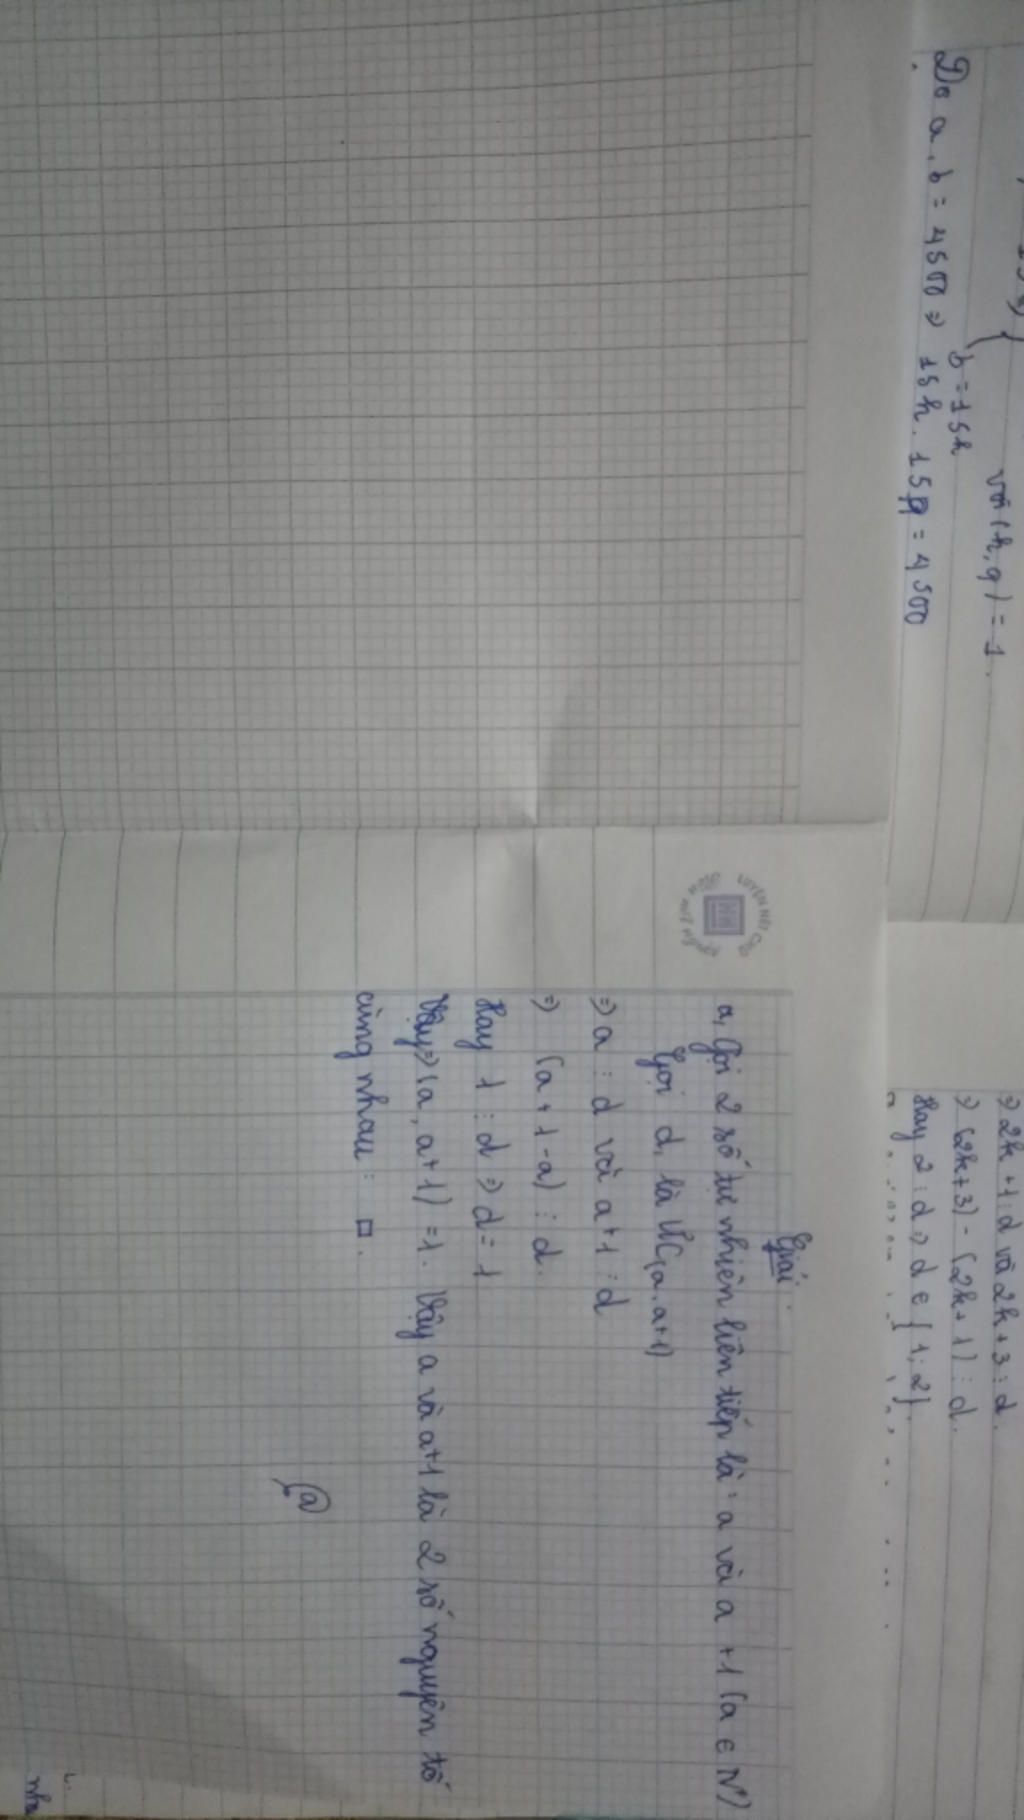 b = 15k
với (k, q) = 1.
Do a . b = 4500 => 15k . 15q = 4500
=> 2k + 1 ⋮ d và 2k + 3 ⋮ d.
=> (2k + 3) - (2k + 1) ⋮ d.
Hay 2 ⋮ d => d ∈ { 1; 2}.
Giải.
a, Gọi 2 số tự nhiên liên tiếp là: a và a + 1 (a ∈ N*)
Gọi d, là ƯC(a . a+1)
=> a ⋮ d và a + 1 ⋮ d
=> (a + 1 - a) ⋮ d.
Hay 1 ⋮ d => d = 1
Vậy => (a, a + 1) = 1. Vậy a và a+1 là 2 số nguyên tố
cùng nhau : □.